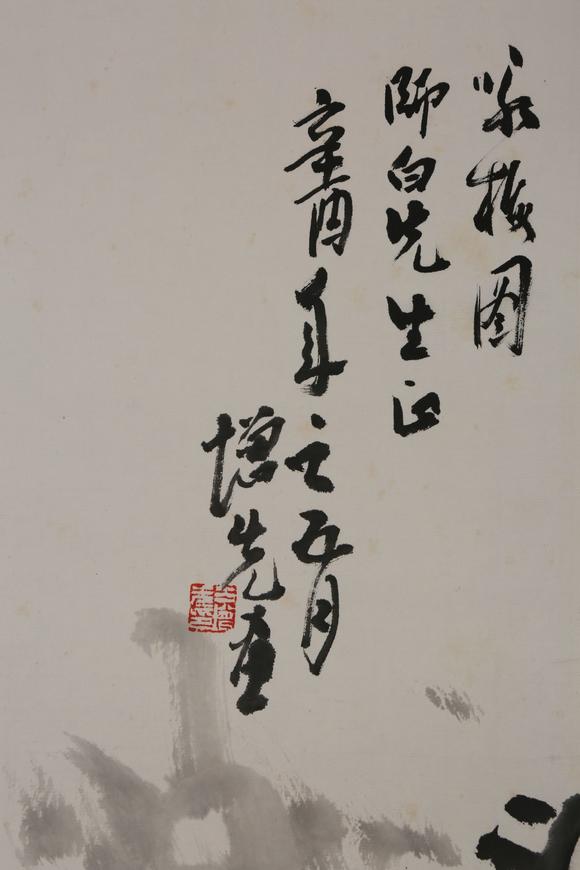 咏梅图
师白先生正
辛酉年之五月
增先画